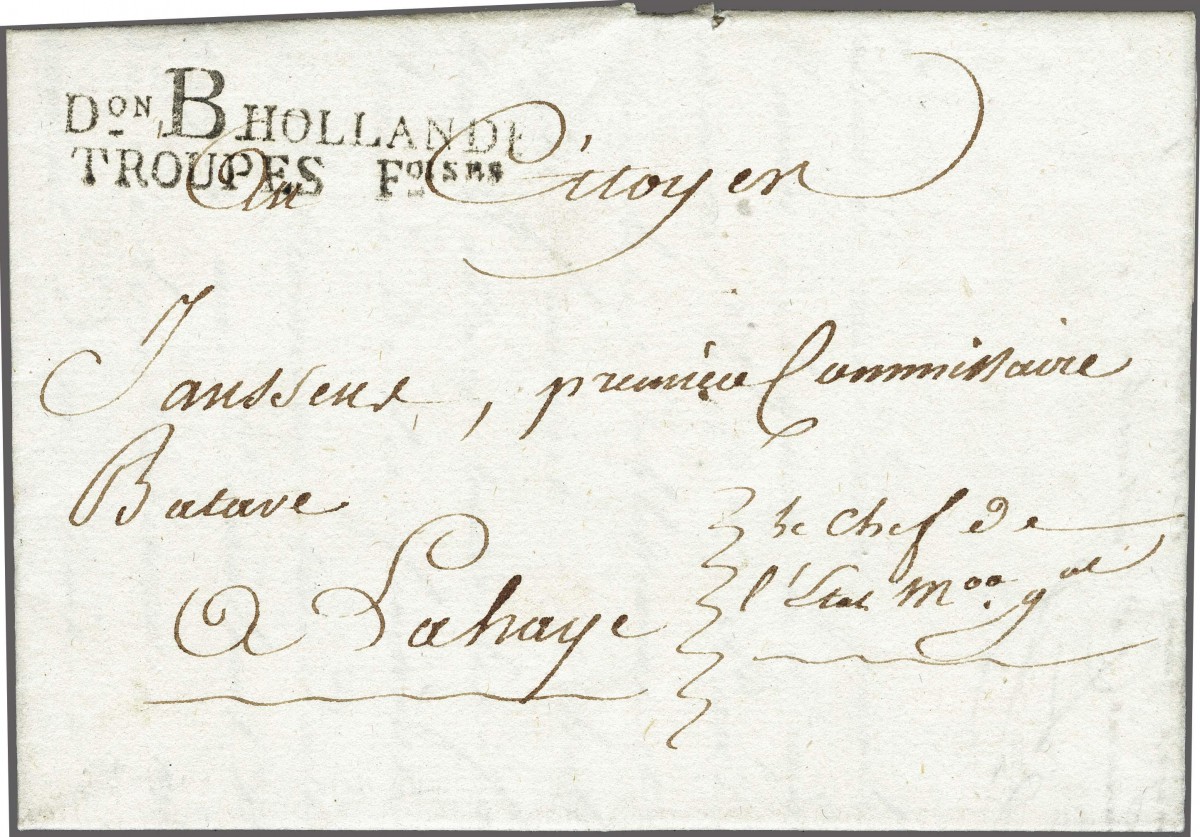 Don B HOLLANDE
TROUPES Foises
Au Citoyen
Janssens, premier Commissaire
Batave
a Lahaye
Le Chef de
l'Etat Mor. gal